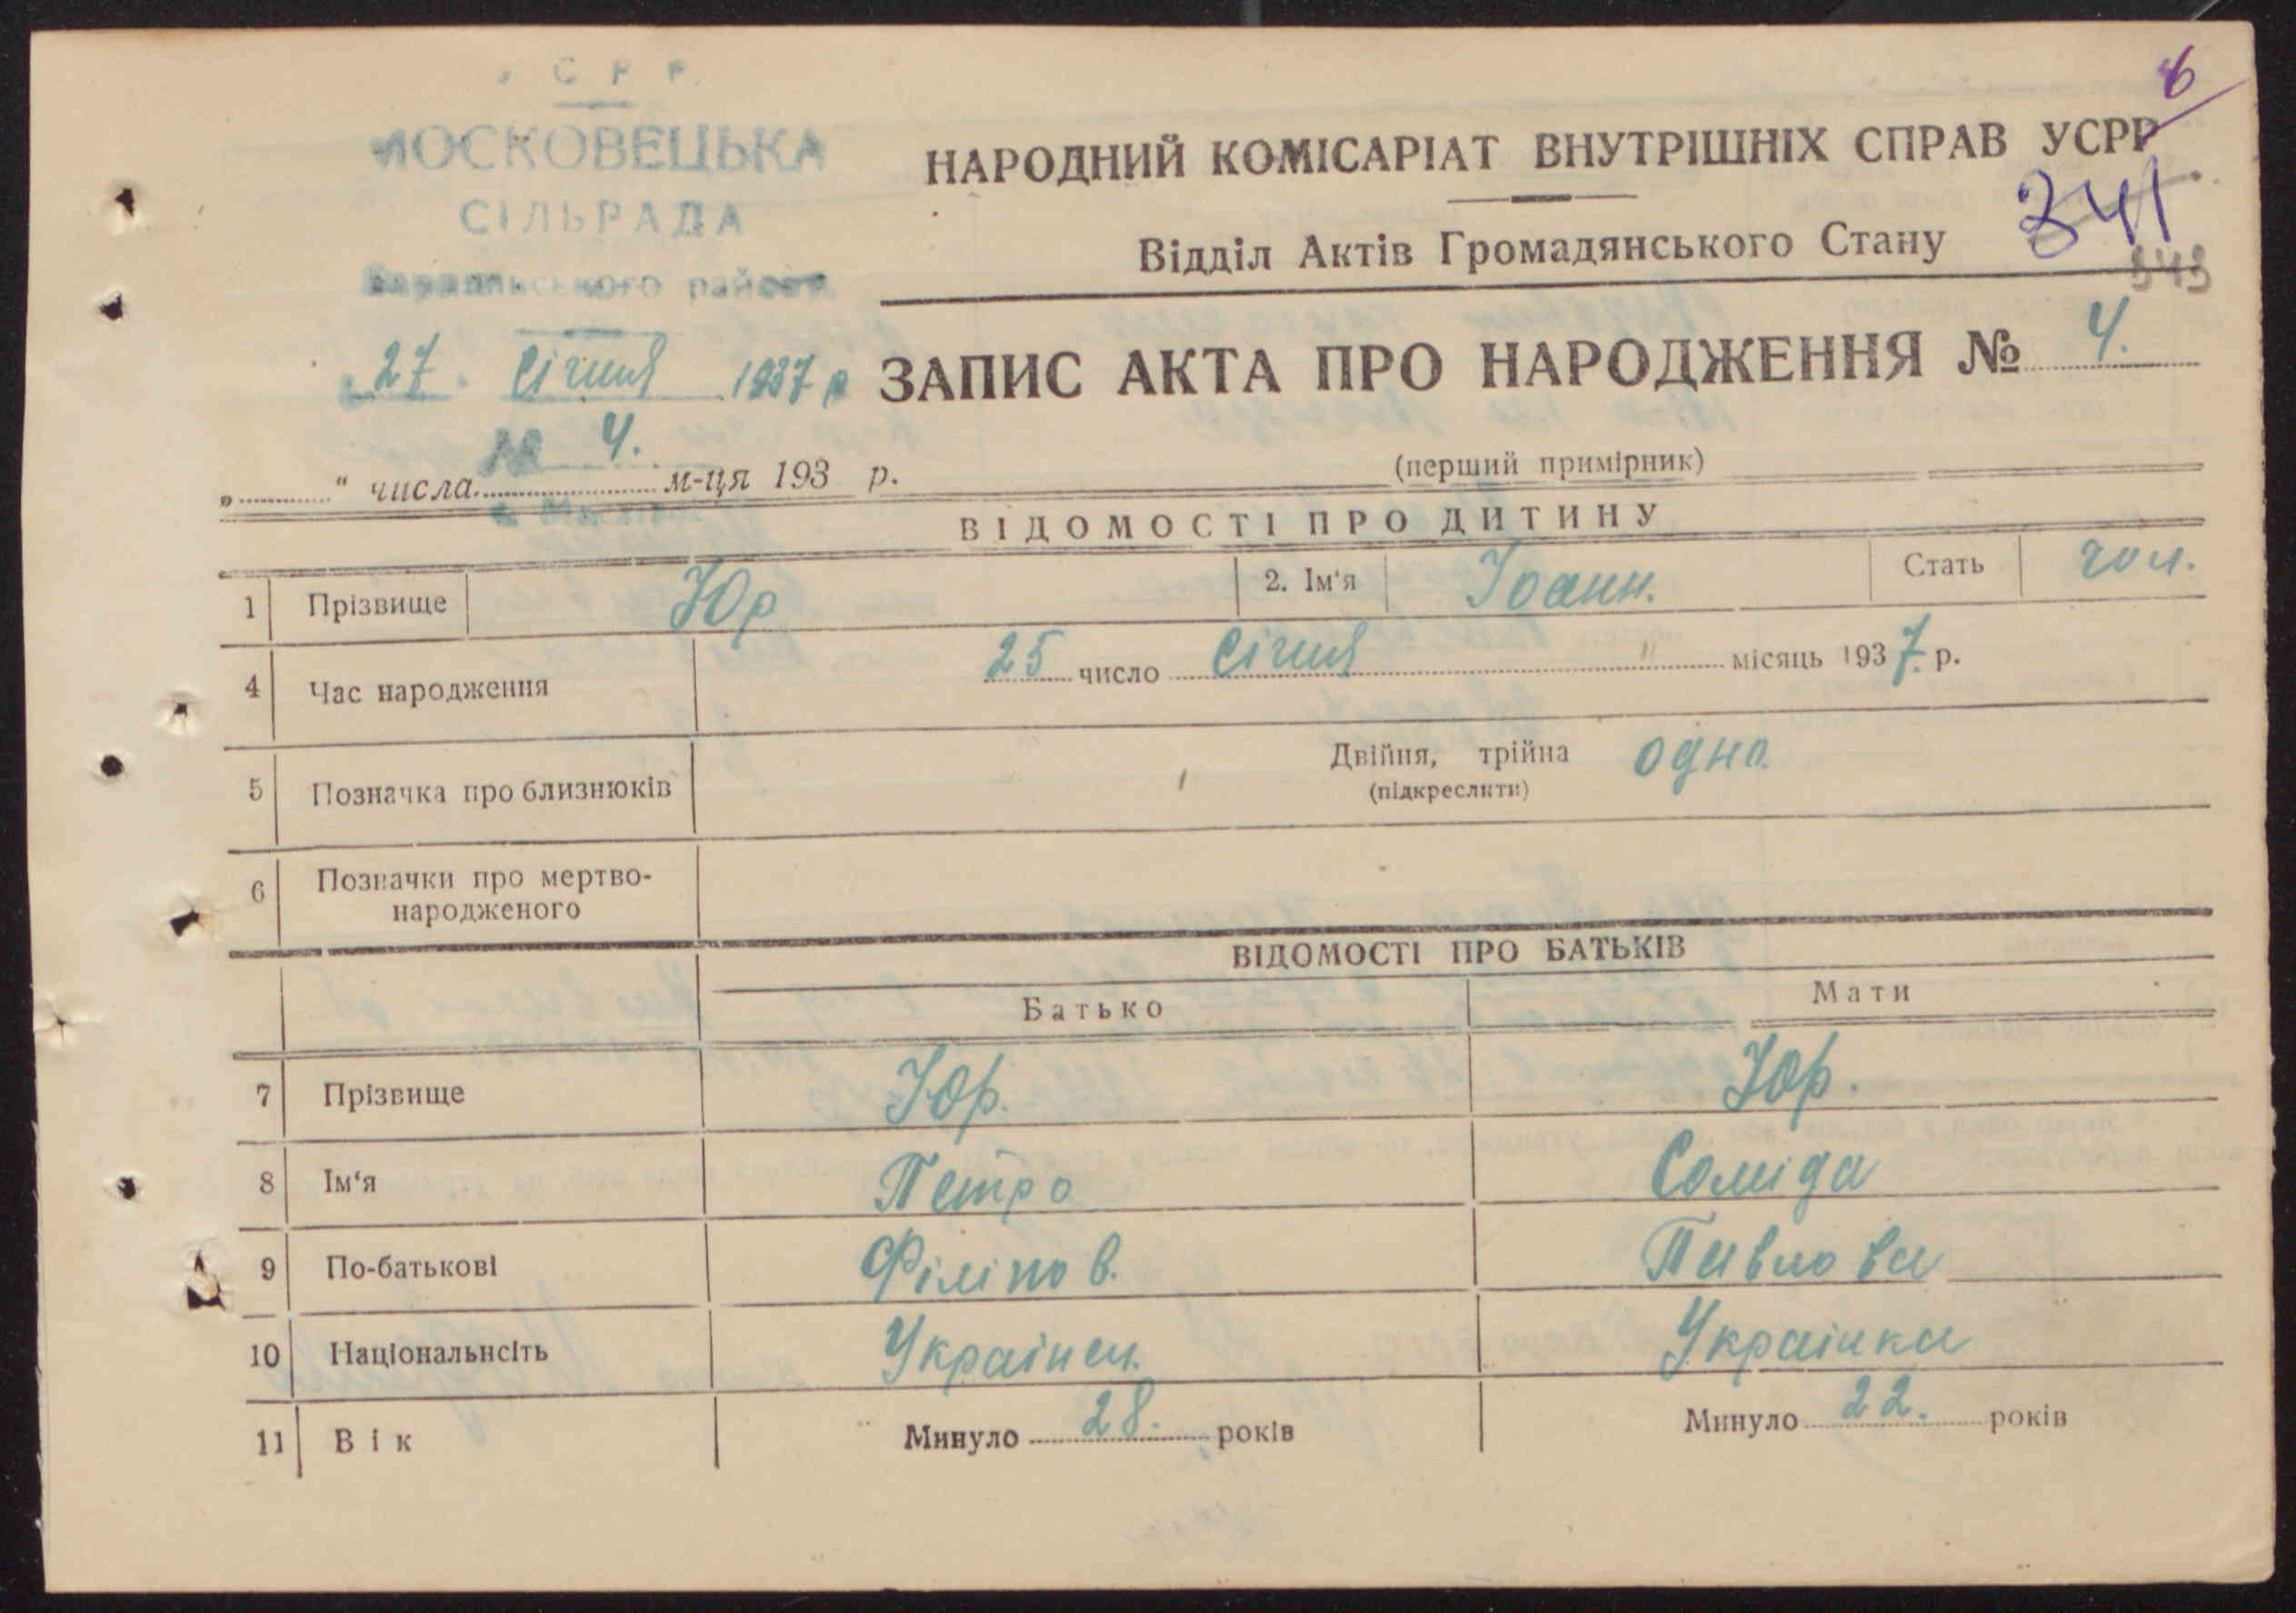 С Р Р
МОСКОВЕЦЬКА
СІЛЬРАДА
району
27. Січня 1937 р
№ 4.
6
НАРОДНИЙ КОМІСАРІАТ ВНУТРІШНІХ СПРАВ УСРР
341
Відділ Актів Громадянського Стану
343
ЗАПИС АКТА ПРО НАРОДЖЕННЯ № 4.
„ “ числа м-ця 193 р.
(перший примірник)
ВІДОМОСТІ ПРО ДИТИНУ
1 Прізвище Юр 2. Ім'я Іоанн. Стать чол.
4 Час народження 25 число Січня місяць 1937 р.
5 Позначка про близнюків Двійня, трійна одно.
(підкреслити)
6 Позначки про мертво-
народженого
ВІДОМОСТІ ПРО БАТЬКІВ
Батько Мати
7 Прізвище Юр. Юр.
8 Ім‘я Петро Соміда
9 По-батькові Філіпов. Павлова
10 Національнсіть Українец. Українка
11 Вік Минуло 28. років Минуло 22. років